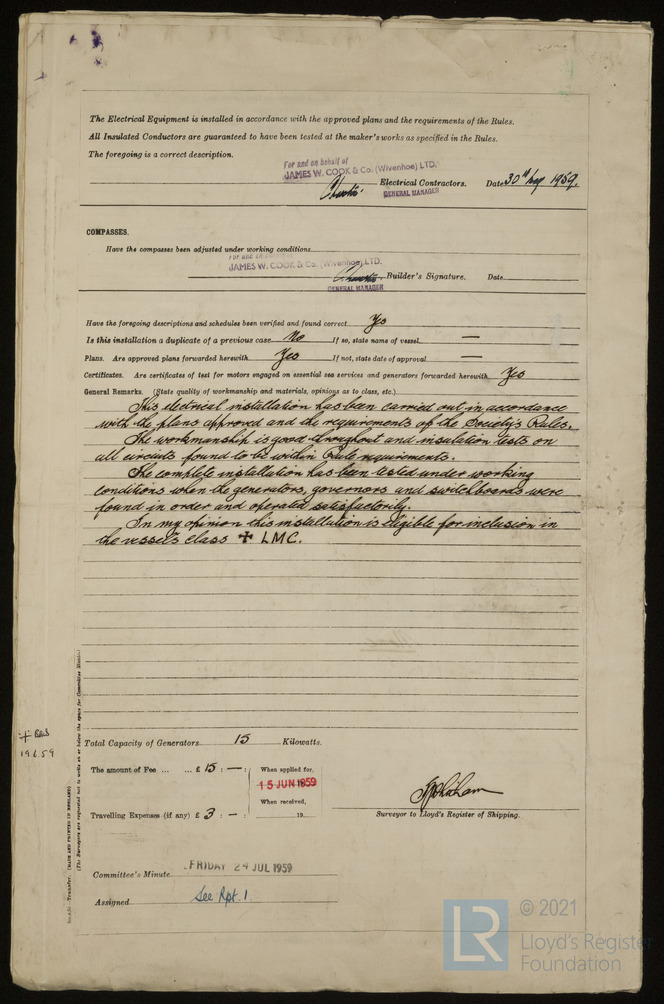 The Electrical Equipment is installed in accordance with the approved plans and the requirements of the Rules.
All Insulated Conductors are guaranteed to have been tested at the maker's works as specified in the Rules.
The foregoing is a correct description.
For and on behalf of
JAMES W. COOK & Co. (Wivenhoe) LTD.
Electrical Contractors. Date 30th 1959.
GENERAL MANAGER
COMPASSES.
Have the compasses been adjusted under working conditions
For and on behalf of
JAMES W. COOK & Co. (Wivenhoe) LTD.
Builder's Signature. Date
GENERAL MANAGER
Have the foregoing descriptions and schedules been verified and found correct Yes
Is this installation a duplicate of a previous case No If so, state name of vessel —
Plans. Are approved plans forwarded herewith Yes If not, state date of approval —
Certificates. Are certificates of test for motors engaged on essential sea services and generators forwarded herewith Yes
General Remarks. (State quality of workmanship and materials, opinions as to class, etc.)
This electrical installation has been carried out in accordance
with the plans approved and the requirements of the Society's Rules.
The workmanship is good throughout and insulation tests on
all circuits found to be within Rule requirements.
The complete installation has been tested under working
conditions when the generators, governors and switchboards were
found in order and operated satisfactorily.
In my opinion this installation is eligible for inclusion in
the vessel's class ✠ LMC.
19.6.59
Total Capacity of Generators 15 Kilowatts.
The amount of Fee ... ... £ 15 : — :
When applied for,
15 JUN 1959
When received,
Travelling Expenses (if any) £ 3 : — :
19
Surveyor to Lloyd's Register of Shipping.
Committee's Minute FRIDAY 24 JUL 1959
Assigned See Rpt. 1.
Transfer. (MADE AND PRINTED IN ENGLAND)
(The Surveyors are requested not to write on or below the space for Committee Minute)
LR
© 2021
Lloyd's Register
Foundation